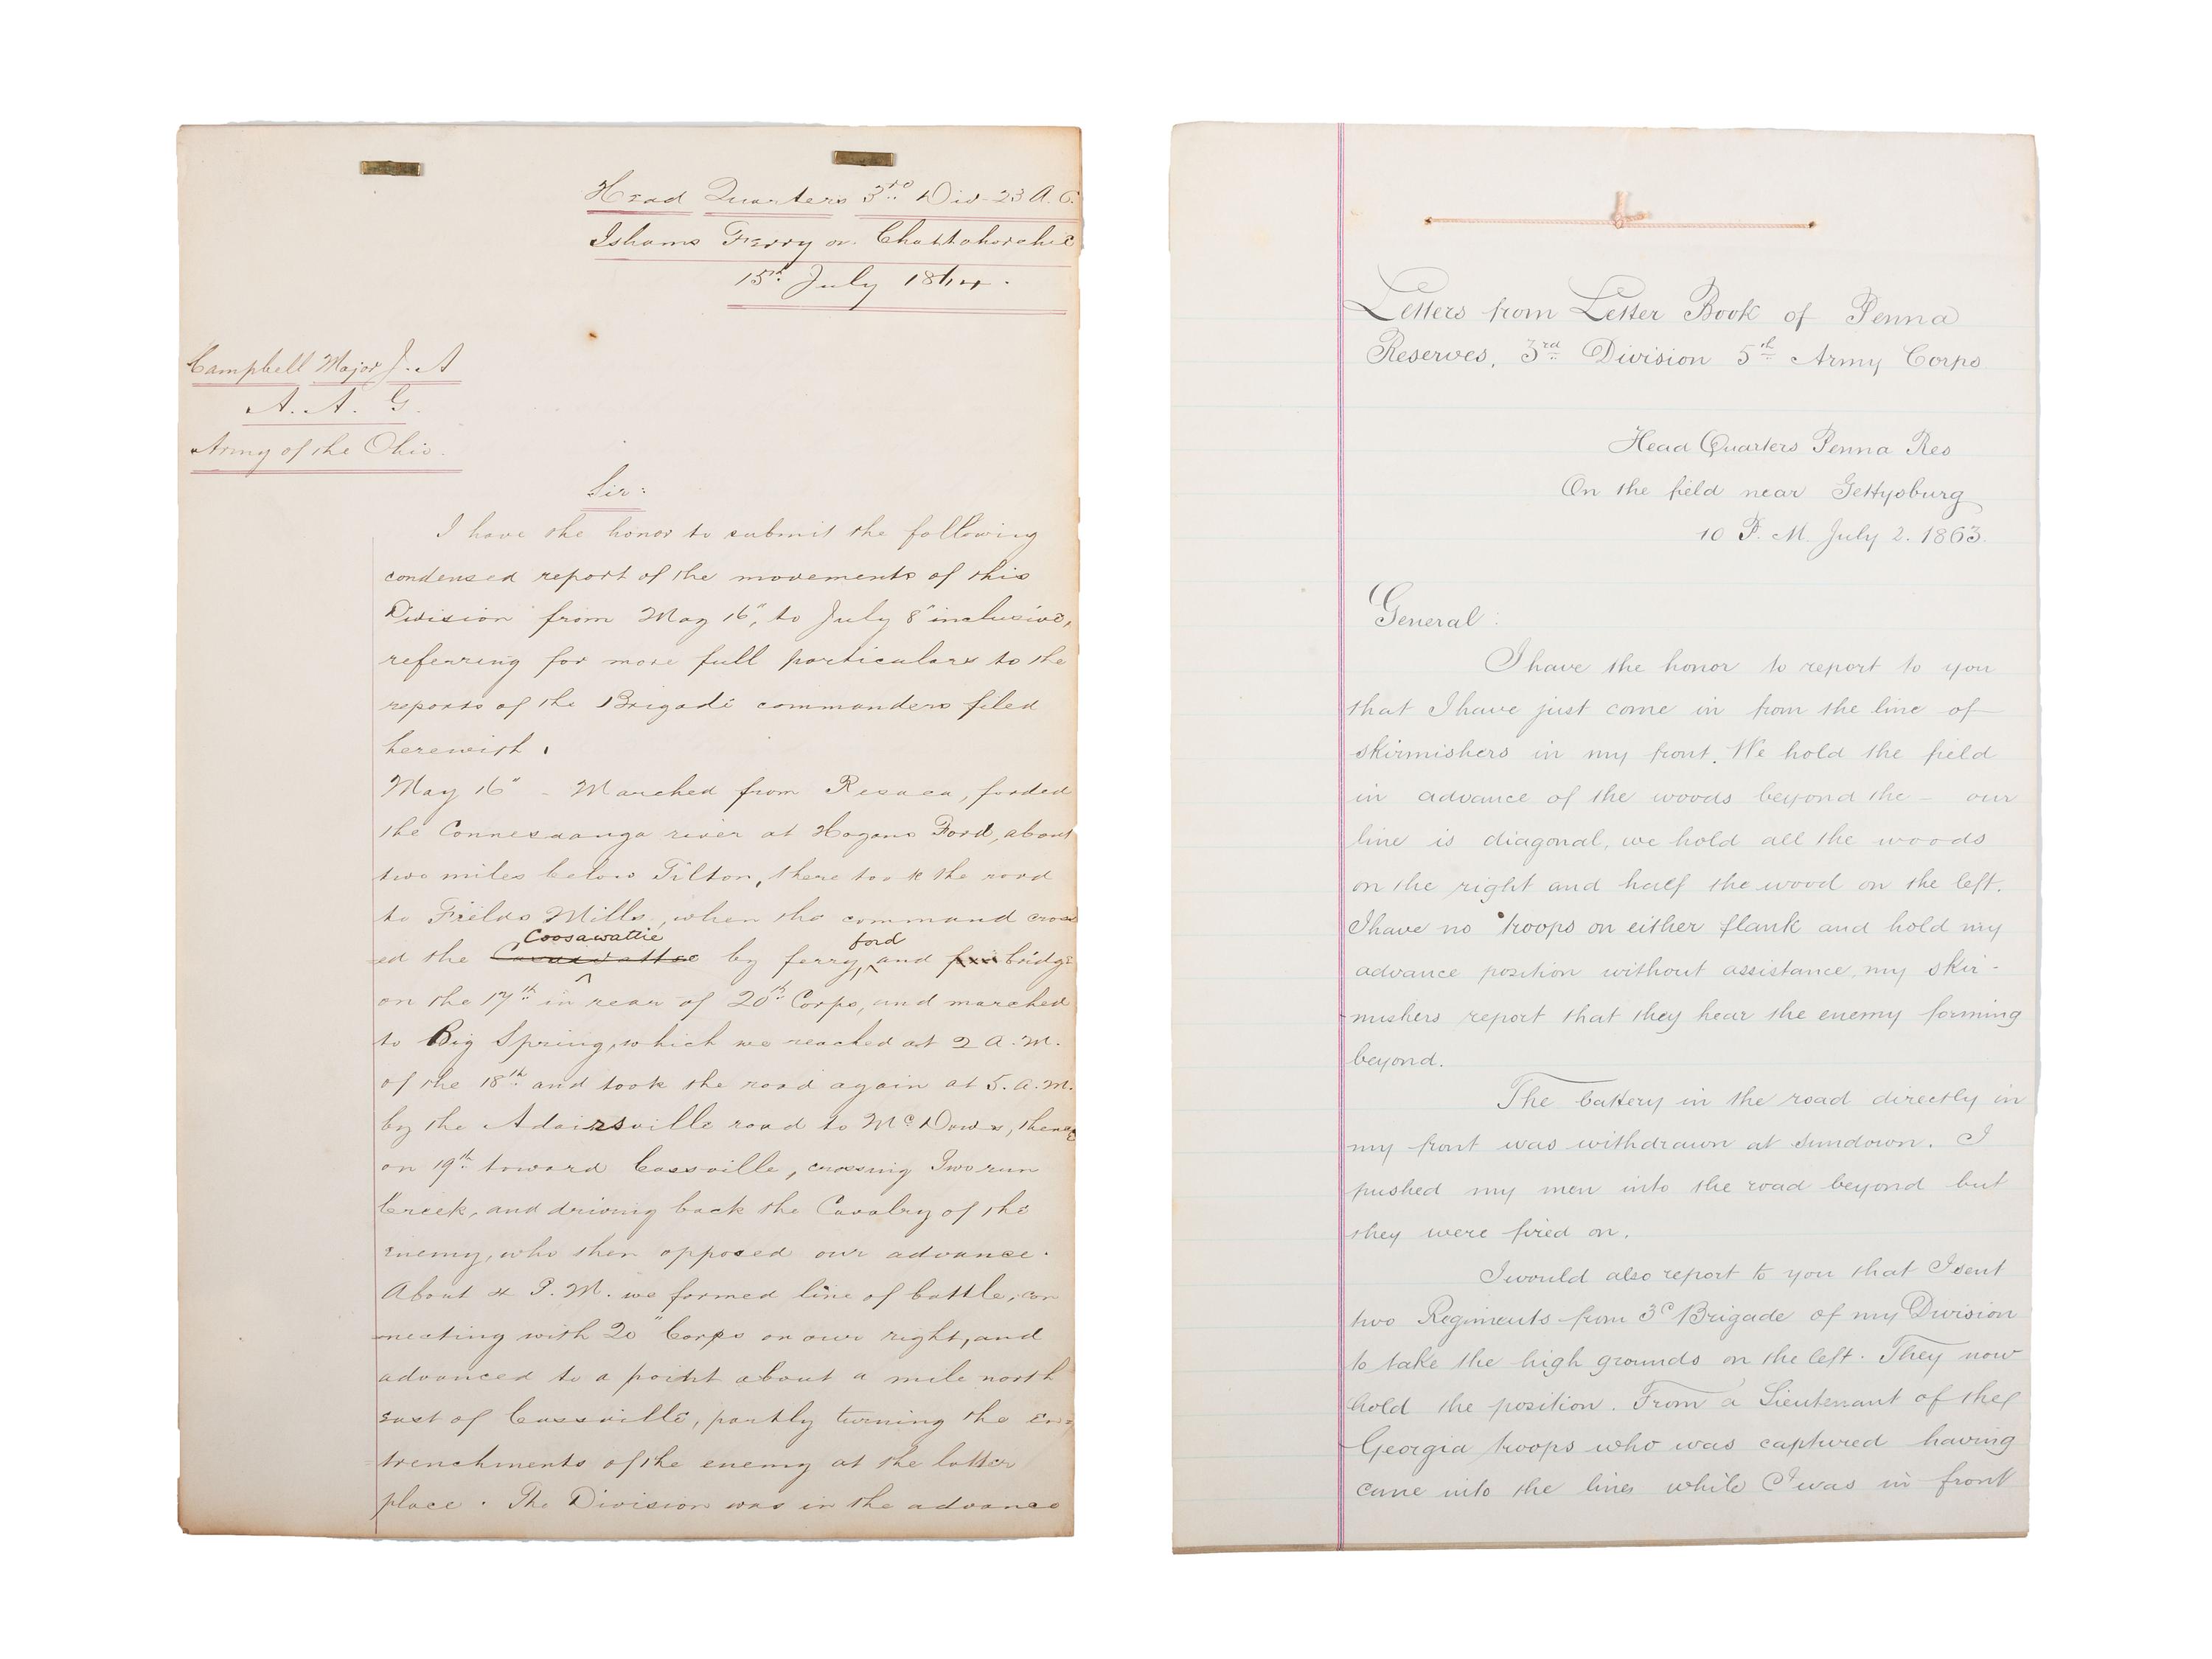 Head Quarters 3rd Div 23 A. C.
Ishams Ferry on Chattahoochie
15th July 1864.
Campbell Major J. A
A. A. G.
Army of the Ohio.
Sir:
I have the honor to submit the following
condensed report of the movements of this
Division from May 16", to July 8" inclusive,
referring for more full particulars to the
reports of the Brigade commanders filed
herewith.
May 16" - Marched from Resaca, forded
the Connesauga river at Hogans Ford, about
two miles below Tilton, there took the road
to Fields Mills, when the command cross
Coosawattie ford
ed the by ferry, and bridge
on the 17th in rear of 20th Corps, and marched
to Big Spring, which we reached at 2 A. M.
of the 18th and took the road again at 5. A. M.
by the Adairsville road to McDows, thence
on 19th toward Cassville, crossing Two run
Creek, and driving back the Cavalry of the
enemy, who then opposed our advance.
About 4 P. M. we formed line of battle, con
necting with 20" Corps on our right, and
advanced to a point about a mile north
east of Cassville, partly turning the en-
trenchments of the enemy at the latter
place. The Division was in the advance
Letters from Letter Book of Penna
Reserves, 3rd Division 5th Army Corps
Head Quarters Penna Res
On the field near Gettysburg
10 P. M. July 2. 1863.
General:
I have the honor to report to you
that I have just come in from the line of
skirmishers in my front. We hold the field
in advance of the woods beyond the - our
line is diagonal, we hold all the woods
on the right and half the wood on the left.
I have no troops on either flank and hold my
advance position without assistance, my skir-
mishers report that they hear the enemy forming
beyond.
The battery in the road directly in
my front was withdrawn at sundown. I
pushed my men into the road beyond but
they were fired on.
I would also report to you that I sent
two Regiments from 3d Brigade of my Division
to take the high grounds on the left. They now
hold the position. From a Lieutenant of the
Georgia troops who was captured having
came into the lines while I was in front